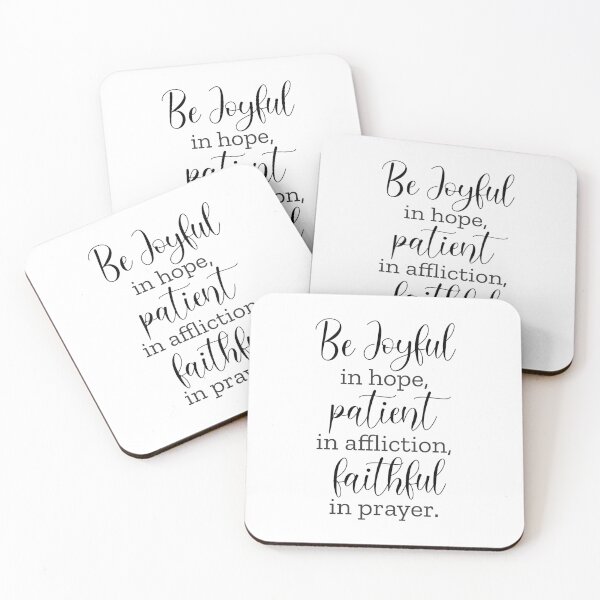 Be Joyful
in hope,
patient
Be Joyful
in hope,
patient
in affliction,
faithful
Be Joyful
in hope,
patient
in affliction
faithful
in pray
Be Joyful
in hope,
patient
in affliction,
faithful
in prayer.